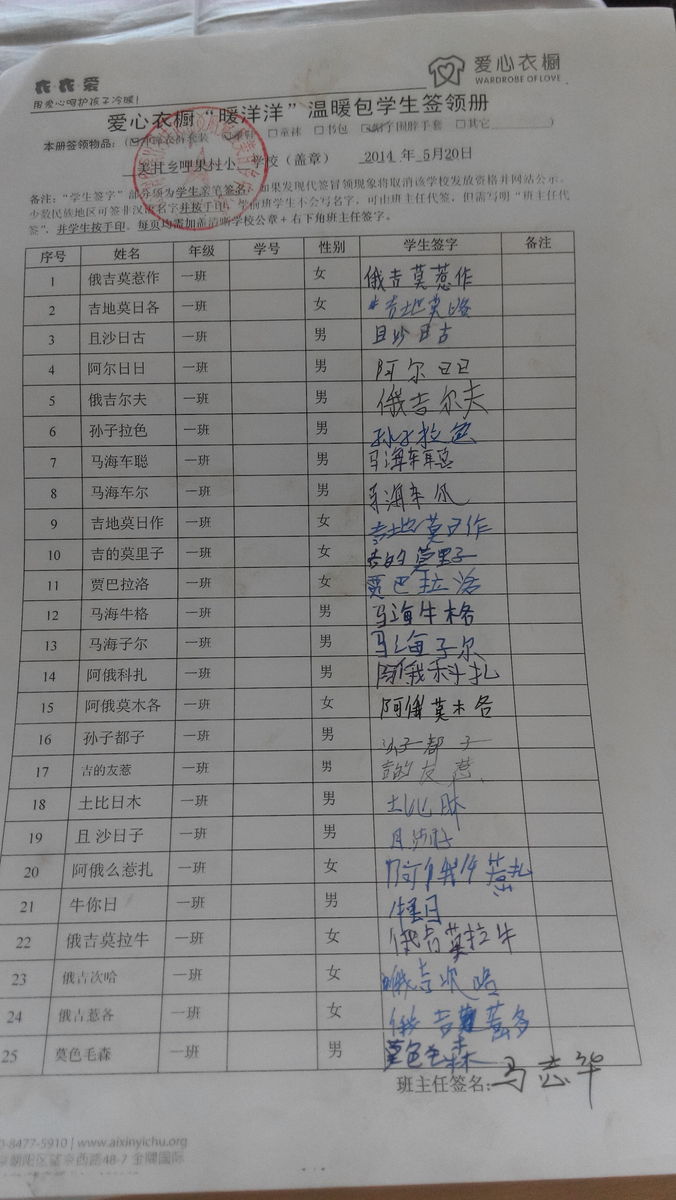 衣衣爱
用爱心呵护孩子冷暖!
爱心衣橱
WARDROBE OF LOVE
爱心衣橱“暖洋洋”温暖包学生签领册
本册签领物品: 童袜 书包 帽子围脖手套 其它
学校（盖章） 2014 年 5月20日
备注：“学生签字”部分须为学生亲笔签名，如果发现代签冒领现象将取消该学校发放资格并网站公示。
少数民族地区可签非汉语名字并按手印，学前班学生不会写名字，可由班主任代签，但需写明“班主任代
签”，并学生按手印。每页均需加盖清晰学校公章+右下角班主任签字。
序号 姓名 年级 学号 性别 学生签字 备注
1 俄吉莫惹作 一班 女 俄吉莫惹作
2 吉地莫日各 一班 女 吉地莫
3 且沙日古 一班 男 且沙日古
4 阿尔日日 一班 男 阿尔日日
5 俄吉尔夫 一班 男 俄吉尔夫
6 孙子拉色 一班 男 孙子拉色
7 马海车聪 一班 男 马海车聪
8 马海车尔 一班 男 马海车
9 吉地莫日作 一班 女 吉地莫日作
10 吉的莫里子 一班 女 吉的莫里子
11 贾巴拉洛 一班 女 贾巴拉洛
12 马海牛格 一班 男 马海牛格
13 马海子尔 一班 男 马海子尔
14 阿俄科扎 一班 男 阿俄科扎
15 阿俄莫木各 一班 女 阿俄莫木各
16 孙子都子 一班 男 孙子都子
17 吉的友惹 一班 男 吉的友惹
18 土比日木 一班 男 土比
19 且沙日子 一班 男
20 阿俄么惹扎 一班 女 阿俄 惹扎
21 牛你日 一班 男 牛 日
22 俄吉莫拉牛 一班 女 俄吉莫拉牛
23 俄吉次哈 一班 女 俄吉次哈
24 俄吉惹各 一班 女 俄吉
25 莫色毛森 一班 男 莫色毛森
班主任签名: 马志华
0-8477-5910 | www.aixinyichu.org
朝阳区望京西路48-7 金隅国际